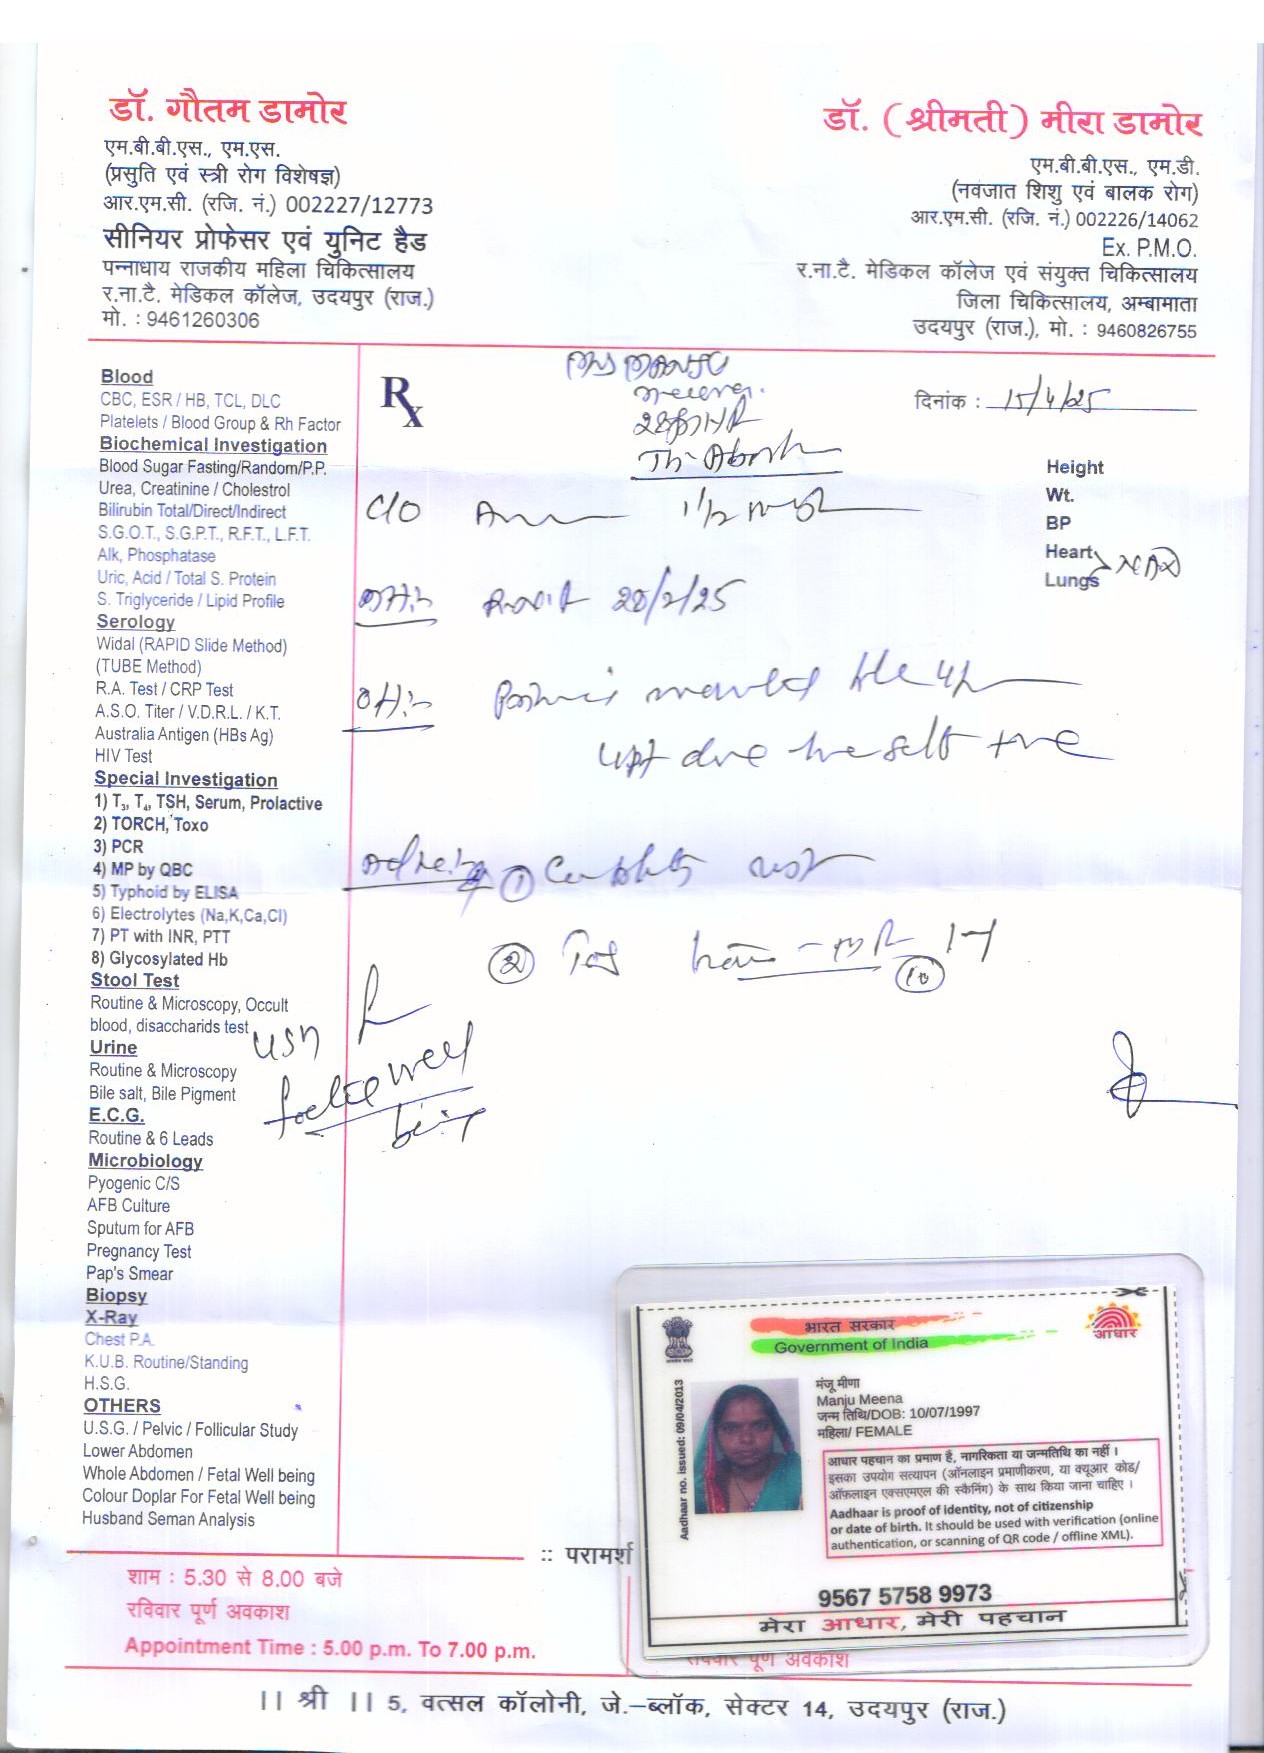 डॉ. गौतम डामोर
एम.बी.बी.एस., एम.एस.
(प्रसुति एवं स्त्री रोग विशेषज्ञ)
आर.एम.सी. (रजि. नं.) 002227/12773
सीनियर प्रोफेसर एवं युनिट हैड
पन्नाधाय राजकीय महिला चिकित्सालय
र.ना.टै. मेडिकल कॉलेज, उदयपुर (राज.)
मो. : 9461260306
डॉ. (श्रीमती) मीरा डामोर
एम.बी.बी.एस., एम.डी.
(नवजात शिशु एवं बालक रोग)
आर.एम.सी. (रजि. नं.) 002226/14062
Ex. P.M.O.
र.ना.टै. मेडिकल कॉलेज एवं संयुक्त चिकित्सालय
जिला चिकित्सालय, अम्बामाता
उदयपुर (राज.), मो. : 9460826755
Blood
CBC, ESR / HB, TCL, DLC
Platelets / Blood Group & Rh Factor
Biochemical Investigation
Blood Sugar Fasting/Random/P.P.
Urea, Creatinine / Cholestrol
Bilirubin Total/Direct/Indirect
S.G.O.T., S.G.P.T., R.F.T., L.F.T.
Alk, Phosphatase
Uric, Acid / Total S. Protein
S. Triglyceride / Lipid Profile
Serology
Widal (RAPID Slide Method)
(TUBE Method)
R.A. Test / CRP Test
A.S.O. Titer / V.D.R.L. / K.T.
Australia Antigen (HBs Ag)
HIV Test
Special Investigation
1) T3, T4, TSH, Serum, Prolactive
2) TORCH, Toxo
3) PCR
4) MP by QBC
5) Typhoid by ELISA
6) Electrolytes (Na,K,Ca,Cl)
7) PT with INR, PTT
8) Glycosylated Hb
Stool Test
Routine & Microscopy, Occult
blood, disaccharids test
Urine
Routine & Microscopy
Bile salt, Bile Pigment
E.C.G.
Routine & 6 Leads
Microbiology
Pyogenic C/S
AFB Culture
Sputum for AFB
Pregnancy Test
Pap's Smear
Biopsy
X-Ray
Chest P.A.
K.U.B. Routine/Standing
H.S.G.
OTHERS
U.S.G. / Pelvic / Follicular Study
Lower Abdomen
Whole Abdomen / Fetal Well being
Colour Doplar For Fetal Well being
Husband Seman Analysis
Rx
MANJU
दिनांक : 15/4/25
Height
Wt.
BP
Heart
Lungs NAD
C/O 1½
28/2/25
upt due +ve
①
②
⑩
well
being
भारत सरकार
Government of India
आधार
Aadhaar no. issued: 09/04/2013
मंजू मीणा
Manju Meena
जन्म तिथि/DOB: 10/07/1997
महिला/ FEMALE
आधार पहचान का प्रमाण है, नागरिकता या जन्मतिथि का नहीं ।
इसका उपयोग सत्यापन (ऑनलाइन प्रमाणीकरण, या क्यूआर कोड/
ऑफलाइन एक्सएमएल की स्कैनिंग) के साथ किया जाना चाहिए ।
Aadhaar is proof of identity, not of citizenship
or date of birth. It should be used with verification (online
authentication, or scanning of QR code / offline XML).
9567 5758 9973
मेरा आधार, मेरी पहचान
:: परामर्श
शाम : 5.30 से 8.00 बजे
रविवार पूर्ण अवकाश
Appointment Time : 5.00 p.m. To 7.00 p.m.
रविवार पूर्ण अवकाश
|| श्री || 5, वत्सल कॉलोनी, जे.–ब्लॉक, सेक्टर 14, उदयपुर (राज.)